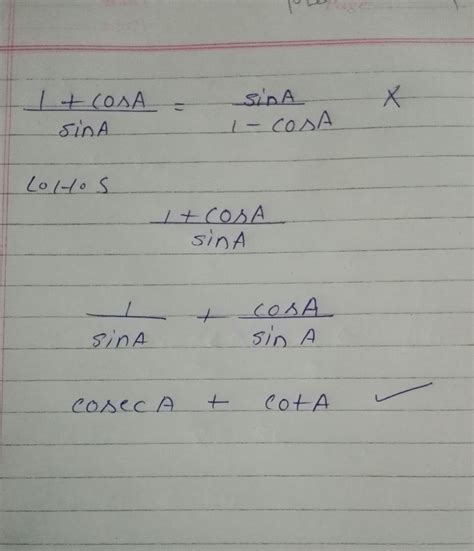 (1 + cosA)/sinA = sinA/(1 - cosA) X
L.H.S
(1 + cosA)/sinA
1/sinA + cosA/sin A
cosecA + cotA ✓